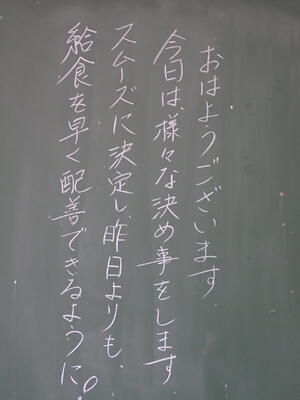 おはようございます
今日は、様々な決め事をします
スムーズに決定し、昨日よりも、
給食を早く配善できるように。